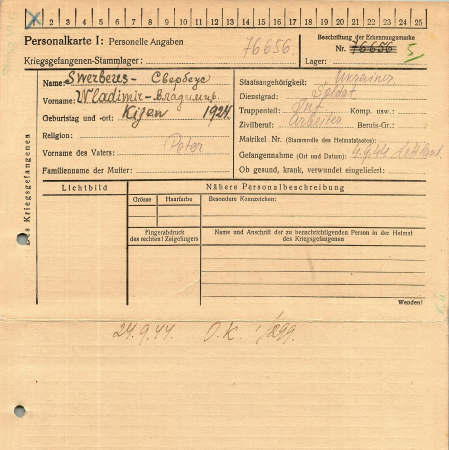 X 2 3 4 5 6 7 8 9 10 11 12 13 14 15 16 17 18 19 20 21 22 23 24 25
Personalkarte I: Personelle Angaben
Kriegsgefangenen-Stammlager:
76656.
Beschriftung der Erkennungsmarke
Nr. 76656
Lager:
des Kriegsgefangenen
Name: Swerbeus - Свербеус
Vorname: Wladimir - Владимир.
Geburtstag und -ort: Kijen 1924.
Religion:
Vorname des Vaters: Peter
Familienname der Mutter:
Staatsangehörigkeit: Ukrainer
Dienstgrad: Soldat
Truppenteil: Inf. Komp. usw.:
Zivilberuf: Arbeiter Berufs-Gr.:
Matrikel Nr. (Stammrolle des Heimatstaates):
Gefangennahme (Ort und Datum): 4.9.44 Lettland.
Ob gesund, krank, verwundet eingeliefert:
Lichtbild
Nähere Personalbeschreibung
Grösse Haarfarbe
Besondere Kennzeichen:
Fingerabdruck
des rechten! Zeigefingers
Name und Anschrift der zu benachrichtigenden Person in der Heimat
des Kriegsgefangenen
Wenden!
24.9.44. O.K.